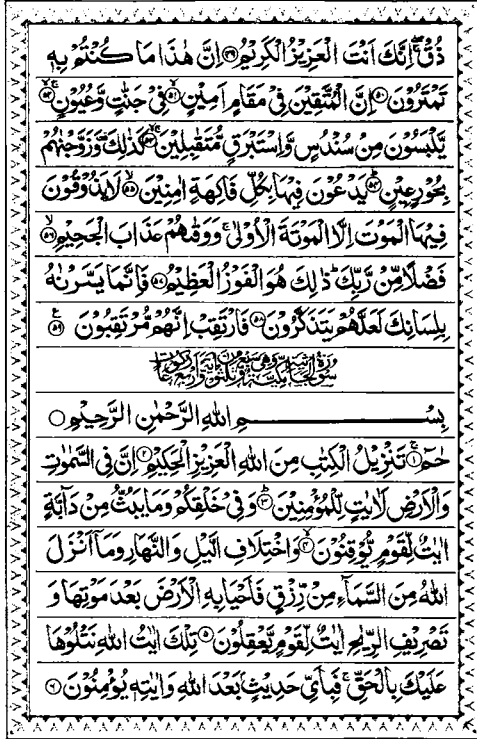 ذُقۡ ۚۙ اِنَّكَ اَنۡتَ الۡعَزِيۡزُ الۡكَرِيۡمُ ﴿۴۹﴾ اِنَّ هٰذَا مَا كُنۡتُمۡ بِهٖ
تَمۡتَرُوۡنَ ﴿۵۰﴾ اِنَّ الۡمُتَّقِيۡنَ فِىۡ مَقَامٍ اَمِيۡنٍۙ ﴿۵۱﴾ فِىۡ جَنّٰتٍ وَّعُيُوۡنٍ ۚۙ ﴿۵۲﴾
يَّلۡبَسُوۡنَ مِنۡ سُنۡدُسٍ وَّاِسۡتَبۡرَقٍ مُّتَقٰبِلِيۡنَ ۚۙ ﴿۵۳﴾ كَذٰلِكَ وَزَوَّجۡنٰهُمۡ
بِحُوۡرٍ عِيۡنٍؕ ﴿۵۴﴾ يَدۡعُوۡنَ فِيۡهَا بِكُلِّ فَاكِهَةٍ اٰمِنِيۡنَۙ ﴿۵۵﴾ لَا يَذُوۡقُوۡنَ
فِيۡهَا الۡمَوۡتَ اِلَّا الۡمَوۡتَةَ الۡاُوۡلٰى ۚ وَوَقٰٮهُمۡ عَذَابَ الۡجَحِيۡمِۙ ﴿۵۶﴾
فَضۡلًا مِّنۡ رَّبِّكَ ؕ ذٰ لِكَ هُوَ الۡفَوۡزُ الۡعَظِيۡمُ ﴿۵۷﴾ فَاِنَّمَا يَسَّرۡنٰهُ
بِلِسَانِكَ لَعَلَّهُمۡ يَتَذَكَّرُوۡنَ ﴿۵۸﴾ فَارۡتَقِبۡ اِنَّهُمۡ مُّرۡتَقِبُوۡنَ ﴿۵۹﴾ ع
بِسۡمِ اللهِ الرَّحۡمٰنِ الرَّحِيۡمِ ○
حٰمٓ ۚ ﴿۱﴾ تَنۡزِيۡلُ الۡكِتٰبِ مِنَ اللهِ الۡعَزِيۡزِ الۡحَكِيۡمِ ﴿۲﴾ اِنَّ فِى السَّمٰوٰتِ
وَالۡاَرۡضِ لَاٰيٰتٍ لِّلۡمُؤۡمِنِيۡنَؕ ﴿۳﴾ وَفِىۡ خَلۡقِكُمۡ وَمَا يَبُثُّ مِنۡ دَآبَّةٍ
اٰيٰتٌ لِّقَوۡمٍ يُّوۡقِنُوۡنَۙ ﴿۴﴾ وَاخۡتِلَافِ الَّيۡلِ وَالنَّهَارِ وَمَاۤ اَنۡزَلَ
اللهُ مِنَ السَّمَآءِ مِنۡ رِّزۡقٍ فَاَحۡيَا بِهِ الۡاَرۡضَ بَعۡدَ مَوۡتِهَا وَ
تَصۡرِيۡفِ الرِّيٰحِ اٰيٰتٌ لِّقَوۡمٍ يَّعۡقِلُوۡنَ ﴿۵﴾ تِلۡكَ اٰيٰتُ اللهِ نَتۡلُوۡهَا
عَلَيۡكَ بِالۡحَقِّ ۚ فَبِاَىِّ حَدِيۡثٍۢ بَعۡدَ اللهِ وَاٰيٰتِهٖ يُؤۡمِنُوۡنَ ﴿۶﴾